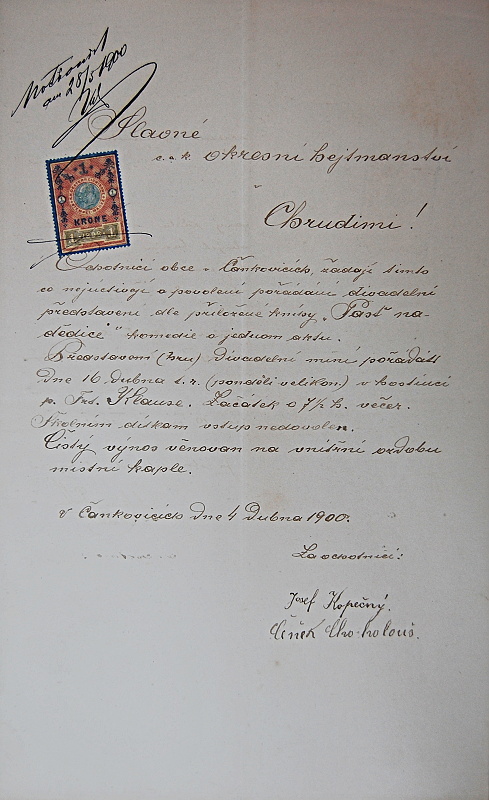 am 28/5 1900
Slavné
c. a k. okresní hejtmanství
v
Chrudimi!
1
KRONE
Ochotníci obce v Čankovicích, žádají tímto
co nejuctivěji o povolení pořádání divadelní
představení dle přiložené knihy „Past na-
dědice“ komedie o jednom aktu.
Představení (hru) divadelní míní pořádati
dne 16 dubna t. r. (pondělí velikon.) v hostinci
p. Frt. Klause. Začátek o 7½ h. večer.
Školním dítkám vstup nedovolen.
Čistý výnos věnován na vnitřní ozdobu
místní kaple.
V Čankovicích dne 4 dubna 1900.
Za ochotníci:
Josef Kopečný.
Čeněk